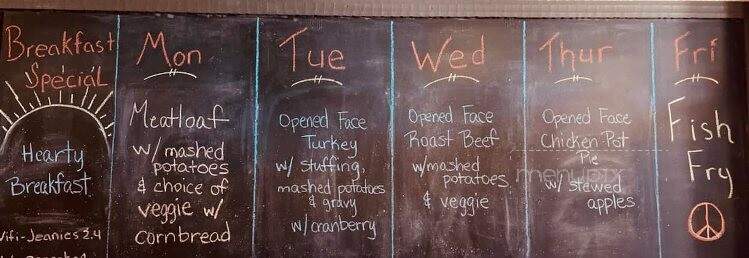 Breakfast
Special
Hearty
Breakfast
Wifi-Jeanies 2.4
Mon
Meatloaf
w/ mashed
potatoes
& choice of
veggie w/
cornbread
Tue
Opened Face
Turkey
w/ stuffing,
mashed potatoes
& gravy
w/ cranberry
Wed
Opened Face
Roast Beef
w/mashed
potatoes
& veggie
Thur
Opened Face
Chicken Pot
Pie
w/ stewed
apples
menupix
Fri
Fish
Fry